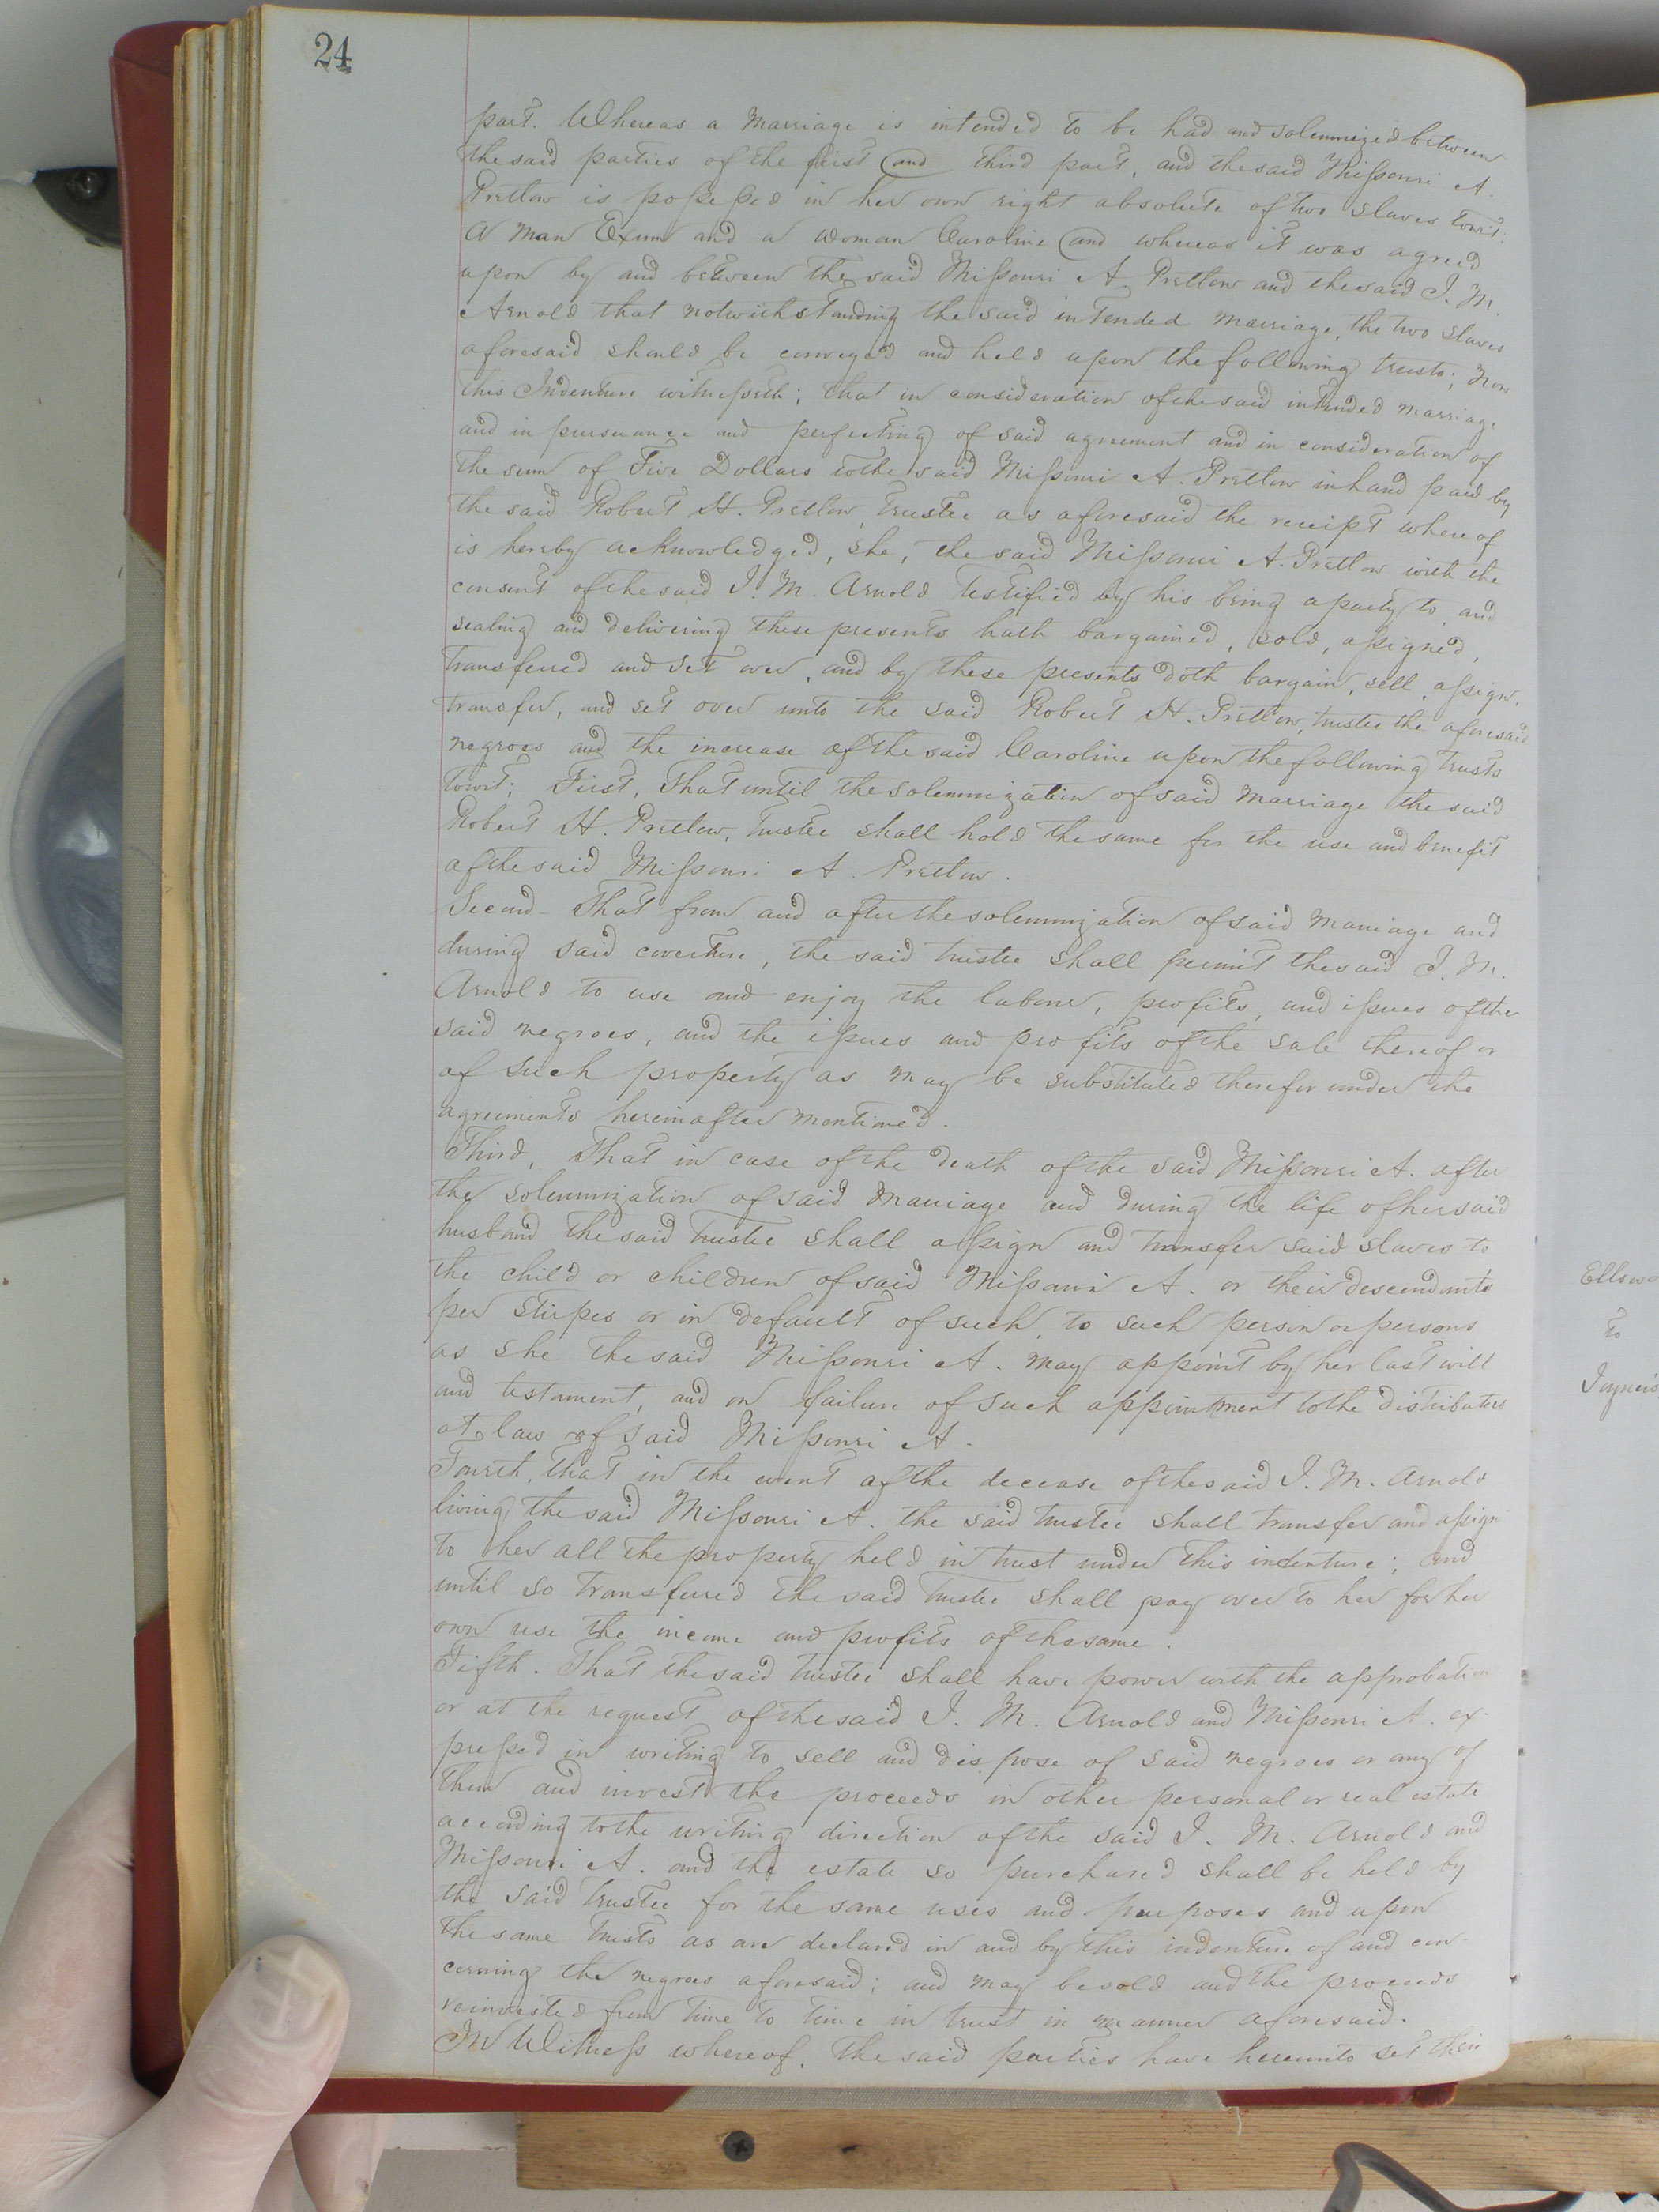 24
part. Whereas a marriage is intended to be had and solemnized between
the said parties of the first and third part, and the said Missouri A.
Pretlow is possessed in her own right absolute of two slaves towit:
A man Exum and a woman Caroline and whereas it was agreed
upon by and between the said Missouri A Pretlow and the said J. M.
Arnold that notwithstanding the said intended marriage, the two slaves
aforesaid should be conveyed and held upon the following trusts; Now
this Indenture witnesseth; that in consideration of the said intended marriage
and in pursuance and perfecting of said agreement and in consideration of
the sum of Five Dollars to the said Missouri A. Pretlow in hand paid by
the said Robert H. Pretlow, Trustee as aforesaid the receipt whereof
is hereby acknowledged, she, the said Missouri A. Pretlow with the
consent of the said J. M. Arnold testified by his being a party to, and
sealing and delivering these presents hath bargained, sold, assigned,
transferred and set over, and by these presents doth bargain, sell, assign,
transfer, and set over unto the said Robert H. Pretlow, trustee the aforesaid
negroes and the increase of the said Caroline upon the following trusts
towit; First, That until the solemnization of said marriage the said
Robert H. Pretlow, trustee shall hold the same for the use and benefit
of the said Missouri A. Pretlow.
Second - That from and after the solemnization of said marriage and
during said coverture, the said trustee shall permit the said J. M.
Arnold to use and enjoy the labour, profits, and issues of the
said negroes, and the issues and profits of the sale thereof or
of such property as may be substituted therefor under the
agreements hereinafter mentioned.
Third, That in case of the death of the said Missouri A. after
the solemnization of said marriage and during the life of her said
husband the said trustee shall assign and transfer said slaves to
the child or children of said Missouri A. or their descendants
per stirpes or in default of such, to such person or persons
as she the said Missouri A. may appoint by her last will
and testament, and on failure of such appointment to the distributees
at law of said Missouri A.
Fourth, that in the event of the decease of the said J. M. Arnold
living the said Missouri A. the said trustee shall transfer and assign
to her all the property held in trust under this indenture; and
until so transferred the said trustee shall pay over to her for her
own use the income and profits of the same.
Fifth. That the said trustee shall have power with the approbation
or at the request of the said J. M. Arnold and Missouri A. ex-
pressed in writing to sell and dispose of said negroes or any of
them and invest the proceeds in other personal or real estate
according to the writing direction of the said J. M. Arnold and
Missouri A. and the estate so purchased shall be held by
the said trustee for the same uses and purposes and upon
the same trusts as are declared in and by this indenture of and con
cerning the negroes aforesaid; and may be sold and the proceeds
reinvested from time to time in trust in manner aforesaid.
In Witness whereof, the said parties have hereunto set their
to